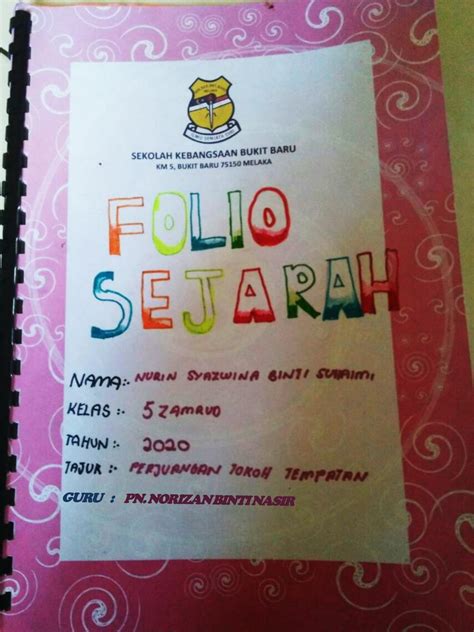 SEKOLAH KEBANGSAAN BUKIT BARU
KM 5, BUKIT BARU 75150 MELAKA
FOLIO
SEJARAH
NAMA:- NURIN SYAZWINA BINTI SUHAIMI
KELAS :- 5 ZAMRUD
TAHUN :- 2020
TAJUK :- PERJUANGAN TOKOH TEMPATAN
GURU : PN. NORIZAN BINTI NASIR